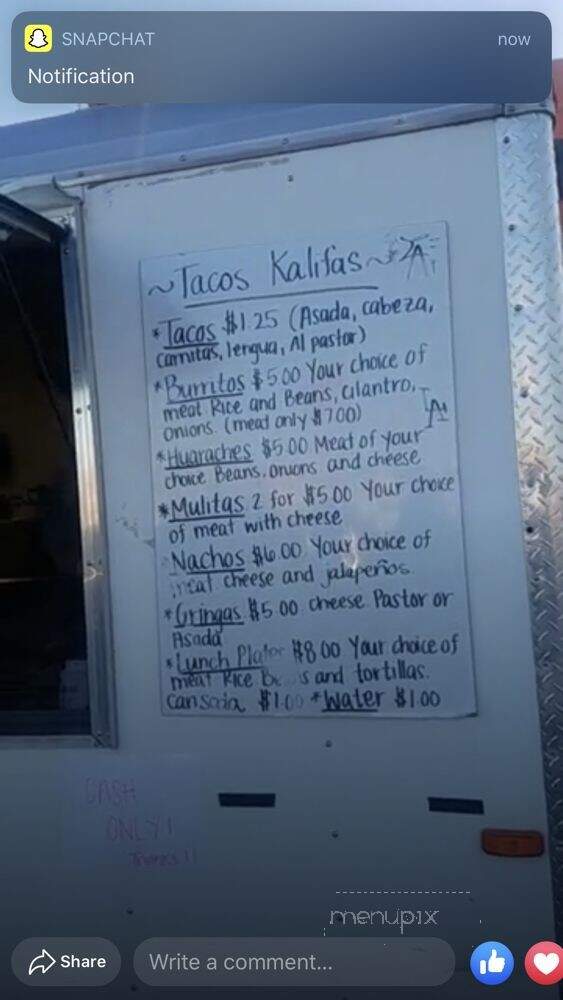 SNAPCHAT now
Notification
~Tacos Kalifas~
*Tacos $1.25 (Asada, cabeza,
carnitas, lengua, Al pastor)
*Burritos $5.00 Your choice of
meat Rice and Beans, cilantro,
onions. (meat only $7.00)
*Huaraches $5.00 Meat of your
choice Beans, onions and cheese
*Mulitas 2 for $5.00 Your choice
of meat with cheese
Nachos $6.00 Your choice of
meat cheese and jalapeños.
*Gringas $5.00 cheese Pastor or
Asada
*Lunch Plate $8.00 Your choice of
meat Rice and tortillas.
can soda $1.00 *Water $1.00
CASH
ONLY!
Thanks!!
menupix
Share
Write a comment...